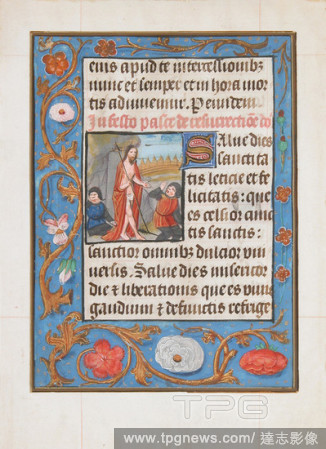 euis apud te intercessionibz
nunc et semper et in hora mor
tis adiuuemur. Per eundem
In festo pasce de resurrectiõe do
Salue dies
sanctita
tis leticie et fe
licitatis: que
es celsior om
tis sanctis:
sanctior omnibz dulcior vni
uersis. Salue dies misericor
die et liberationis que es viuis
gaudium et defunctis refrige
TPG
www.tpgnews.com/ 達志影像